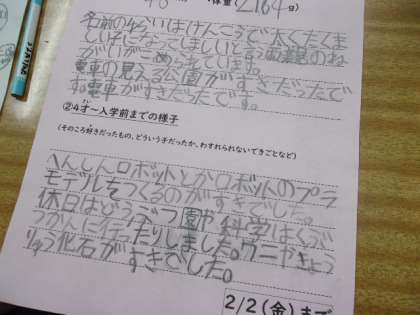 体重 2164g)
名前の由らいはけんこうで太くたくま
しい子になってほしいと言う両親のね
がいがこめられています。
電車の見える公園がすきだったで
す。電車がすきだったです。
②4才~入学前までの様子
(そのころ好きだったもの、どういう子だったか、わすれられないできごとなど)
へんしんロボットとかロボットのプラ
モデルをつくるのがすきでした。
休日はどうぶつ園や科学はくぶ
つかんに行ったりしました。ウニやきょう
りゅう化石がすきでした。
2/2(金)まで